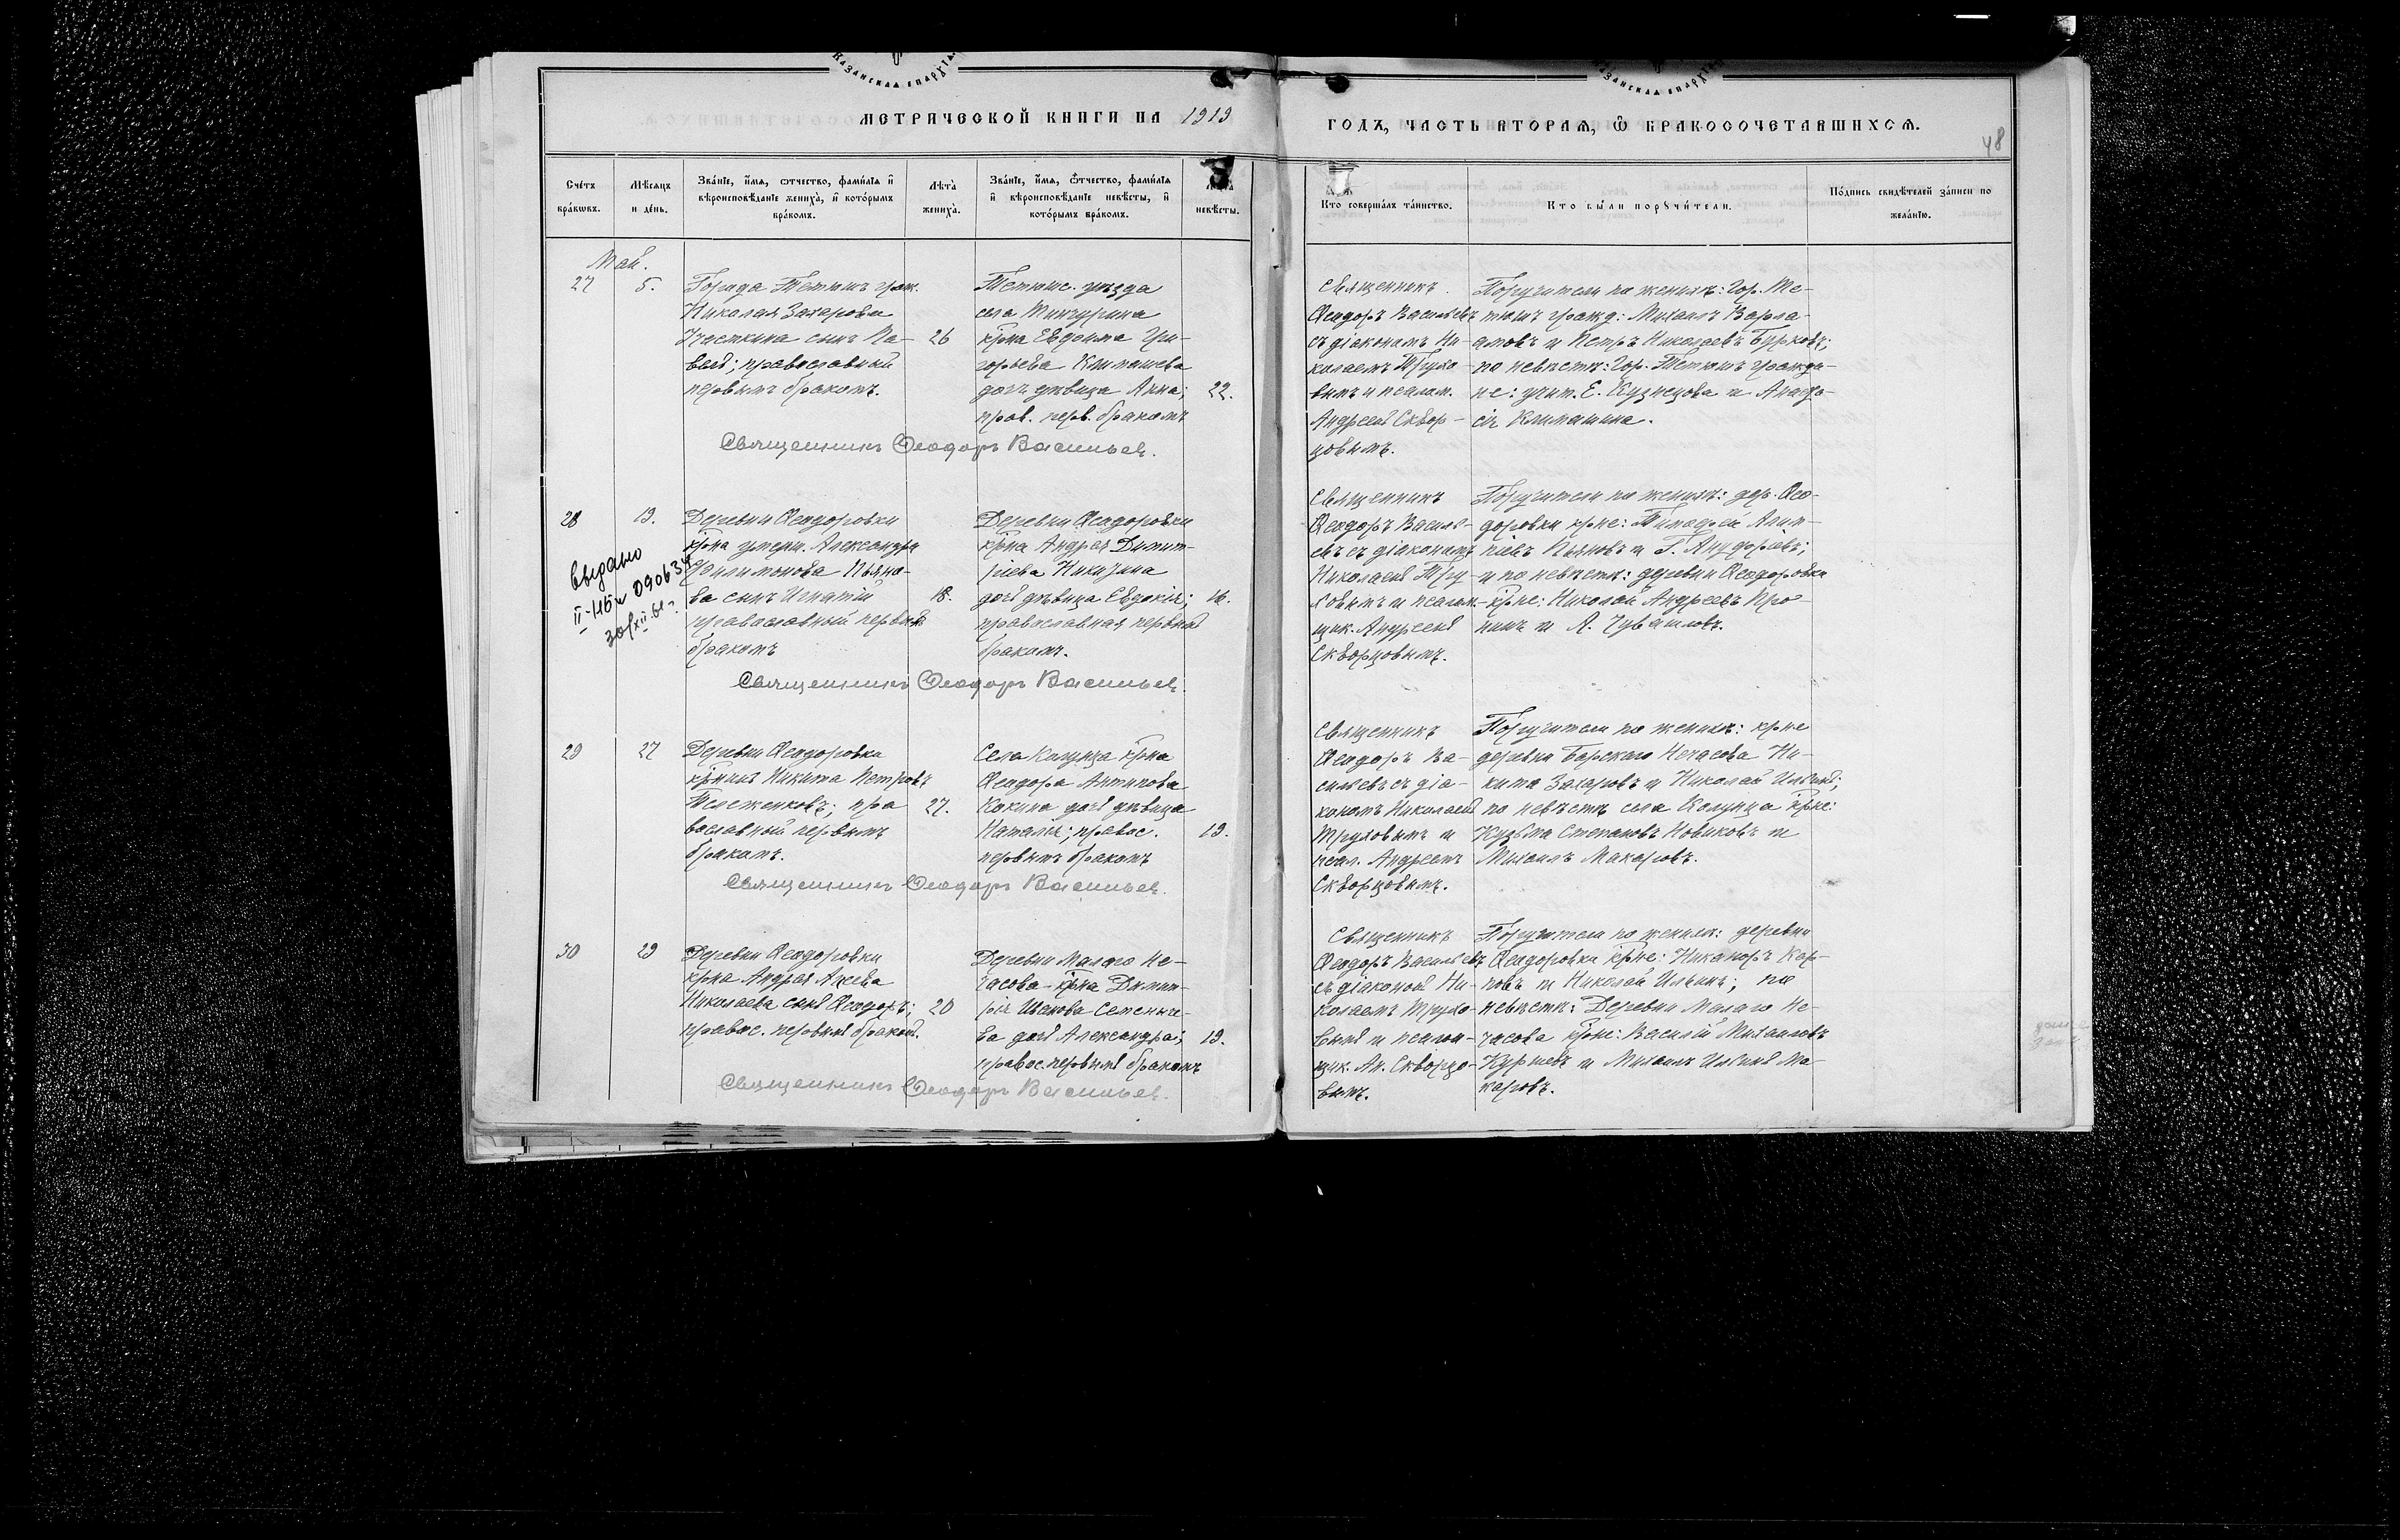 Казанская епархія
Казанская епархія
МЕТРИЧЕСКОЙ КНИГИ НА 1919
ГОДЪ, ЧАСТЬ ВТОРАЯ, Ѡ БРАКОСОЧЕТАВШИХСЯ.
48
Счетъ браковъ.
Мѣсяцъ и день.
Званіе, имя, отчество, фамилія и вѣроисповѣданіе жениха, и которымъ бракомъ.
Лѣта жениха.
Званіе, имя, отчество, фамилія и вѣроисповѣданіе невѣсты, и которымъ бракомъ.
невѣсты.
Кто совершалъ таинство.
Кто были поручители.
Подпись свидѣтелей записи по желанію.
Май.
27
5.
Города Тетюшъ граж.
Николая Захарова
сынъ Па-
велъ; православный
первымъ бракомъ.
26
Тетюш. уѣзда
села
кр-на Евдокима Гри-
горьева Климашева
дочь дѣвица Анна;
прав. перв. бракомъ
22.
Священникъ
Ѳеодоръ Васильевъ
съ діакономъ Ни-
колаемъ Трухо-
вымъ и псалом.
Андреемъ Сквор-
цовымъ.
Поручители по женихѣ: Гор. Те-
тюшъ гражд: Михаилъ Варла-
амовъ и Петръ Николаевъ
по невѣстѣ: Гор. Тетюшъ гражда-
не: учит. Е. Кузнецова и
Климашина.
Священникъ Ѳеодоръ Васильев.
28
13.
выдано
II-115 № 090634
30/XII-61 г.
Деревни Ѳеодоровки
кр-на умерш. Александра
Филимонова Пьяно-
ва сынъ Игнатій
православный первымъ
бракомъ
18.
Деревни Ѳеодоровки
кр-на Андрея Димит-
ріева Никизина
дочь дѣвица Евдокія;
православная первымъ
бракомъ.
16.
Священникъ
Ѳеодоръ Василь-
евъ съ діакономъ
Николаемъ Тру-
ховымъ и псалом-
щик. Андреемъ
Скворцовымъ.
Поручители по женихѣ: дер. Ѳео-
доровки кр-не: Тимофей
Пьяновъ и
и по невѣстѣ: деревни Ѳеодоровки
кр-не: Николай Андреевъ Про-
нинъ и А. Чувашловъ.
Священникъ Ѳеодоръ Васильев.
29
27
Деревни Ѳеодоровки
кр-нинъ Никита Петровъ
Тележенковъ; пра
вославный первымъ
бракомъ.
27.
Села Колунца кр-на
Ѳеодора Антипова
Кокина дочь дѣвица
Наталья; правос.
первымъ бракомъ
19.
Священникъ
Ѳеодоръ Ва-
сильевъ съ діа-
кономъ Николаемъ
Труховымъ и
псал. Андреемъ
Скворцовымъ.
Поручители по женихѣ: кр-не
деревни Барскаго Нечасова Ни-
кита Захаровъ и Николай Ильинъ;
по невѣстѣ села Колунца кр-не:
Кузьма Степановъ Новиковъ и
Михаилъ Макаровъ.
Священникъ Ѳеодоръ Васильев.
30
29
Деревни Ѳеодоровки
кр-на Андрея
Николаева сынъ Ѳеодоръ;
правос. первымъ бракомъ.
20
Деревни Малаго Не-
часова кр-на Димит-
рія Иванова Семеныче-
ва дочь Александра;
правос. первымъ бракомъ
19.
Священникъ
Ѳеодоръ Васильевъ
съ діакономъ Ни-
колаемъ Трухо-
вымъ и псалом-
щик. Ан. Скворцо-
вымъ.
Поручители по женихѣ: деревни
Ѳеодоровки кр-не: Никаноръ Кар-
повъ и Николай Ильинъ; по
невѣстѣ: Деревни Малаго Не-
часова кр-не: Василій Михаиловъ
и Михаилъ Ильинъ Ма-
каровъ.
Священникъ Ѳеодоръ Васильев.